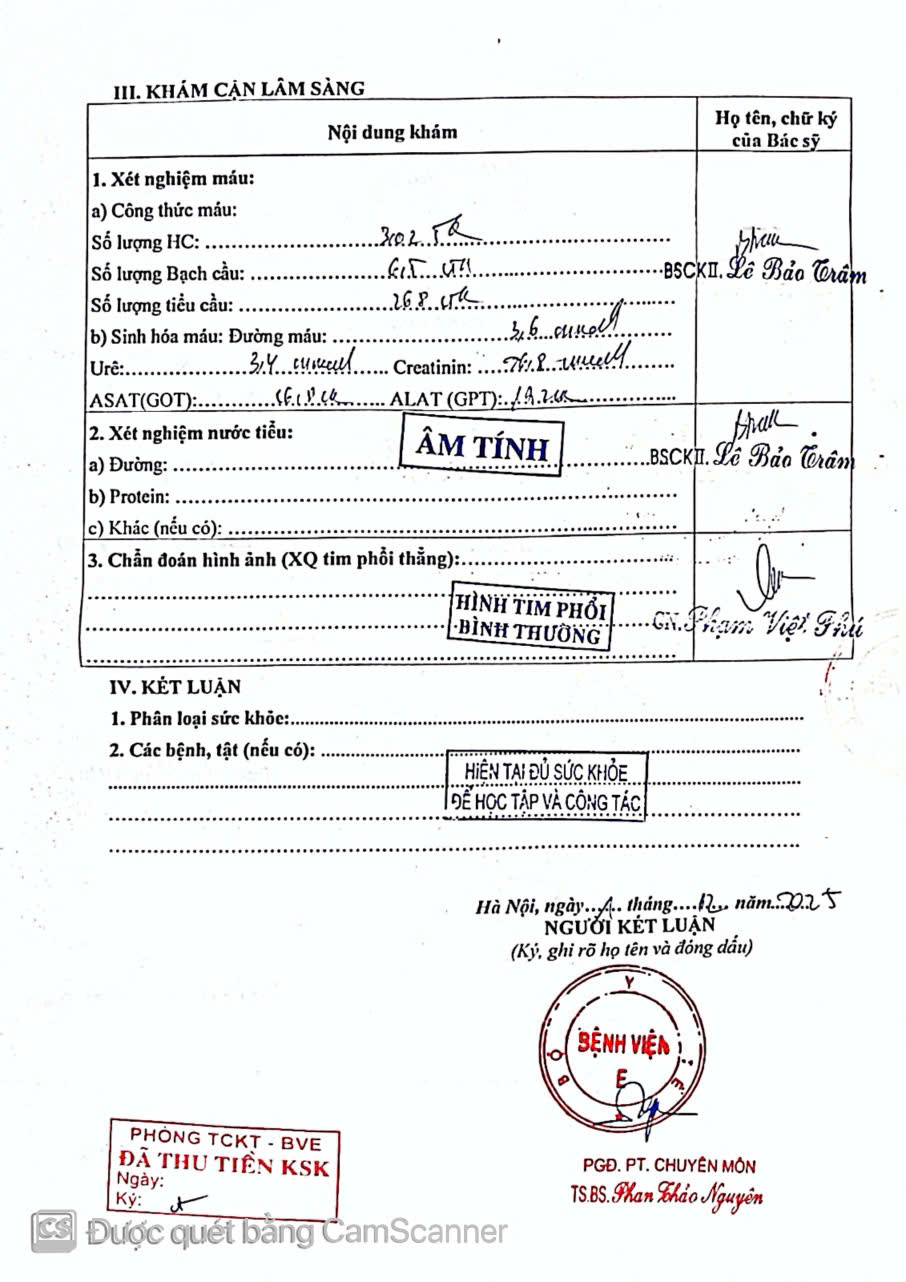 III. KHÁM CẬN LÂM SÀNG
Nội dung khám
Họ tên, chữ ký
của Bác sỹ
1. Xét nghiệm máu:
a) Công thức máu:
Số lượng HC:
Số lượng Bạch cầu:
BSCKII. Lê Bảo Trâm
Số lượng tiểu cầu: 268
b) Sinh hóa máu: Đường máu: 3,6
Urê: 3,4 Creatinin:
ASAT(GOT): ALAT (GPT):
2. Xét nghiệm nước tiểu:
ÂM TÍNH
a) Đường:
BSCKII. Lê Bảo Trâm
b) Protein:
c) Khác (nếu có):
3. Chẩn đoán hình ảnh (XQ tim phổi thẳng):
HÌNH TIM PHỔI
BÌNH THƯỜNG
CN. Phạm Việt Phú
IV. KẾT LUẬN
1. Phân loại sức khỏe:
2. Các bệnh, tật (nếu có):
HIỆN TẠI ĐỦ SỨC KHỎE
ĐỂ HỌC TẬP VÀ CÔNG TÁC
Hà Nội, ngày tháng 12 năm 2025
NGƯỜI KẾT LUẬN
(Ký, ghi rõ họ tên và đóng dấu)
BỘ Y TẾ
BỆNH VIỆN
E
PGĐ. PT. CHUYÊN MÔN
TS.BS. Phan Thảo Nguyên
PHÒNG TCKT - BVE
ĐÃ THU TIỀN KSK
Ngày:
Ký:
CS Được quét bằng CamScanner